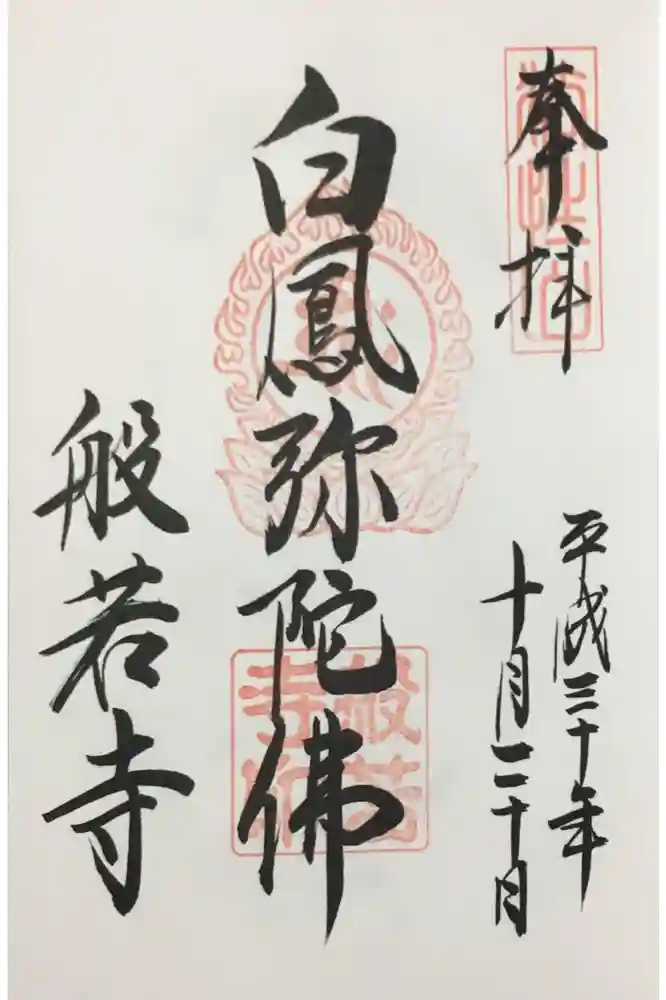 奉拝
平成三十年
十月二十日
白鳳弥陀佛
般若寺
般若寺印